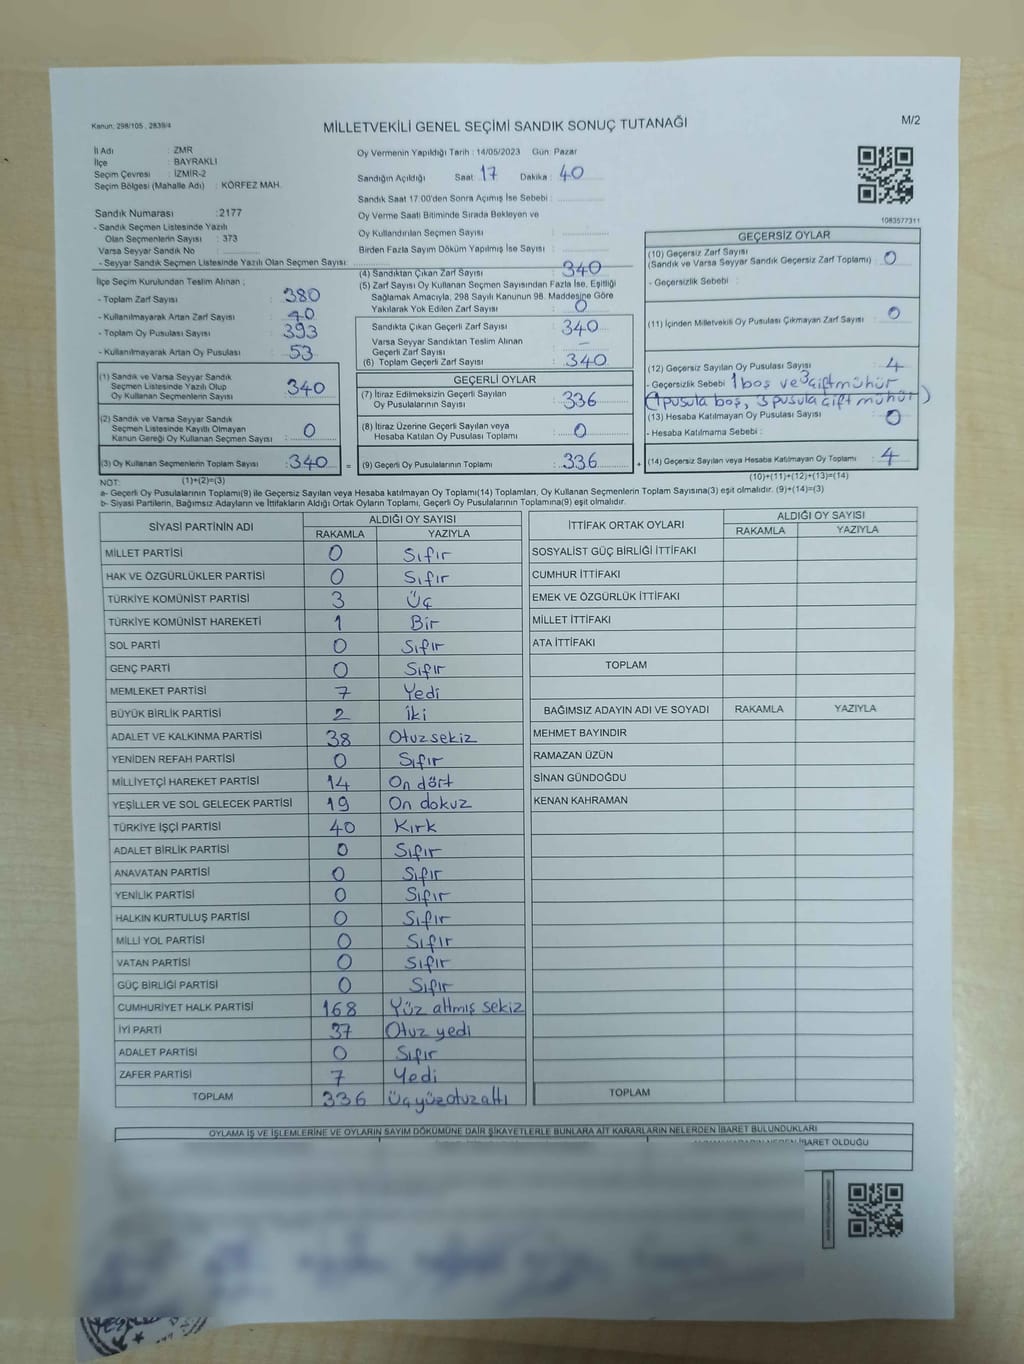 Kanun, 298/105, 2839/4
MİLLETVEKİLİ GENEL SEÇİMİ SANDIK SONUÇ TUTANAĞI
M/2
İl Adı : ZMR
İlçe : BAYRAKLI
Seçim Çevresi : İZMİR-2
Seçim Bölgesi (Mahalle Adı) : KÖRFEZ MAH.
Sandık Numarası : 2177
- Sandık Seçmen Listesinde Yazılı
Olan Seçmenlerin Sayısı : 373
Varsa Seyyar Sandık No :
- Seyyar Sandık Seçmen Listesinde Yazılı Olan Seçmen Sayısı:
Oy Vermenin Yapıldığı Tarih : 14/05/2023 Gün: Pazar
Sandığın Açıldığı Saat : 17 Dakika : 40
Sandık Saat 17.00'den Sonra Açımış İse Sebebi :
Oy Verme Saati Bitiminde Sırada Bekleyen ve
Oy Kullandırılan Seçmen Sayısı :
Birden Fazla Sayım Döküm Yapılmış İse Sayısı :
1083577311
İlçe Seçim Kurulundan Teslim Alınan ;
- Toplam Zarf Sayısı : 380
- Kullanılmayarak Artan Zarf Sayısı : 40
- Toplam Oy Pusulası Sayısı : 393
- Kullanılmayarak Artan Oy Pusulası : 53
(1) Sandık ve Varsa Seyyar Sandık
Seçmen Listesinde Yazılı Olup
Oy Kullanan Seçmenlerin Sayısı : 340
(2) Sandık ve Varsa Seyyar Sandık
Seçmen Listesinde Kayıtlı Olmayan
Kanun Gereği Oy Kullanan Seçmen Sayısı : 0
(3) Oy Kullanan Seçmenlerin Toplam Sayısı : 340 =
(4) Sandıktan Çıkan Zarf Sayısı : 340
(5) Zarf Sayısı Oy Kullanan Seçmen Sayısından Fazla İse, Eşitliği
Sağlamak Amacıyla, 298 Sayılı Kanunun 98. Maddesine Göre
Yakılarak Yok Edilen Zarf Sayısı : 0
Sandıkta Çıkan Geçerli Zarf Sayısı : 340
Varsa Seyyar Sandıktan Teslim Alınan
Geçerli Zarf Sayısı : -
(6) Toplam Geçerli Zarf Sayısı : 340
GEÇERLİ OYLAR
(7) İtiraz Edilmeksizin Geçerli Sayılan
Oy Pusulalarının Sayısı : 336
(8) İtiraz Üzerine Geçerli Sayılan veya
Hesaba Katılan Oy Pusulası Toplamı : 0
(9) Geçerli Oy Pusulalarının Toplamı : 336 +
GEÇERSİZ OYLAR
(10) Geçersiz Zarf Sayısı
(Sandık ve Varsa Seyyar Sandık Geçersiz Zarf Toplamı) : 0
- Geçersizlik Sebebi :
(11) İçinden Milletvekili Oy Pusulası Çıkmayan Zarf Sayısı : 0
(12) Geçersiz Sayılan Oy Pusulası Sayısı : 4
- Geçersizlik Sebebi : 1 boş ve 3 çift mühür
(1 pusula boş, 3 pusula çift mühür)
(13) Hesaba Katılmayan Oy Pusulası Sayısı : 0
- Hesaba Katılmama Sebebi :
(14) Geçersiz Sayılan veya Hesaba Katılmayan Oy Toplamı : 4
NOT: (1)+(2)=(3) (10)+(11)+(12)+(13)=(14)
a- Geçerli Oy Pusulalarının Toplamı(9) ile Geçersiz Sayılan veya Hesaba katılmayan Oy Toplamı(14) Toplamları, Oy Kullanan Seçmenlerin Toplam Sayısına(3) eşit olmalıdır. (9)+(14)=(3)
b- Siyasi Partilerin, Bağımsız Adayların ve İttifakların Aldığı Ortak Oyların Toplamı, Geçerli Oy Pusulalarının Toplamına(9) eşit olmalıdır.
SİYASİ PARTİNİN ADI ALDIĞI OY SAYISI
RAKAMLA YAZIYLA
MİLLET PARTİSİ 0 Sıfır
HAK VE ÖZGÜRLÜKLER PARTİSİ 0 Sıfır
TÜRKİYE KOMÜNİST PARTİSİ 3 Üç
TÜRKİYE KOMÜNİST HAREKETİ 1 Bir
SOL PARTİ 0 Sıfır
GENÇ PARTİ 0 Sıfır
MEMLEKET PARTİSİ 7 Yedi
BÜYÜK BİRLİK PARTİSİ 2 İki
ADALET VE KALKINMA PARTİSİ 38 Otuzsekiz
YENİDEN REFAH PARTİSİ 0 Sıfır
MİLLİYETÇİ HAREKET PARTİSİ 14 On dört
YEŞİLLER VE SOL GELECEK PARTİSİ 19 On dokuz
TÜRKİYE İŞÇİ PARTİSİ 40 Kırk
ADALET BİRLİK PARTİSİ 0 Sıfır
ANAVATAN PARTİSİ 0 Sıfır
YENİLİK PARTİSİ 0 Sıfır
HALKIN KURTULUŞ PARTİSİ 0 Sıfır
MİLLİ YOL PARTİSİ 0 Sıfır
VATAN PARTİSİ 0 Sıfır
GÜÇ BİRLİĞİ PARTİSİ 0 Sıfır
CUMHURİYET HALK PARTİSİ 168 Yüz altmış sekiz
İYİ PARTİ 37 Otuz yedi
ADALET PARTİSİ 0 Sıfır
ZAFER PARTİSİ 7 Yedi
TOPLAM 336 Üçyüzotuzaltı
İTTİFAK ORTAK OYLARI ALDIĞI OY SAYISI
RAKAMLA YAZIYLA
SOSYALİST GÜÇ BİRLİĞİ İTTİFAKI
CUMHUR İTTİFAKI
EMEK VE ÖZGÜRLÜK İTTİFAKI
MİLLET İTTİFAKI
ATA İTTİFAKI
TOPLAM
BAĞIMSIZ ADAYIN ADI VE SOYADI RAKAMLA YAZIYLA
MEHMET BAYINDIR
RAMAZAN ÜZÜN
SİNAN GÜNDOĞDU
KENAN KAHRAMAN
TOPLAM
OYLAMA İŞ VE İŞLEMLERİNE VE OYLARIN SAYIM DÖKÜMÜNE DAİR ŞİKAYETLERLE BUNLARA AİT KARARLARIN NELERDEN İBARET BULUNDUKLARI
İBARET OLDUĞU